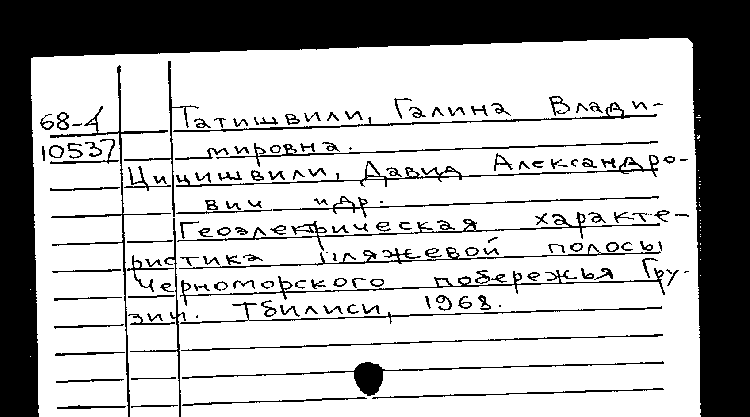 68-4 Татишвили, Галина Влади-
10537 мировна.
Цицишвили, Давид Александро-
вич и др.
Геоэлектрическая характе-
ристика пляжевой полосы
Черноморского побережья Гру-
зии. Тбилиси, 1968.